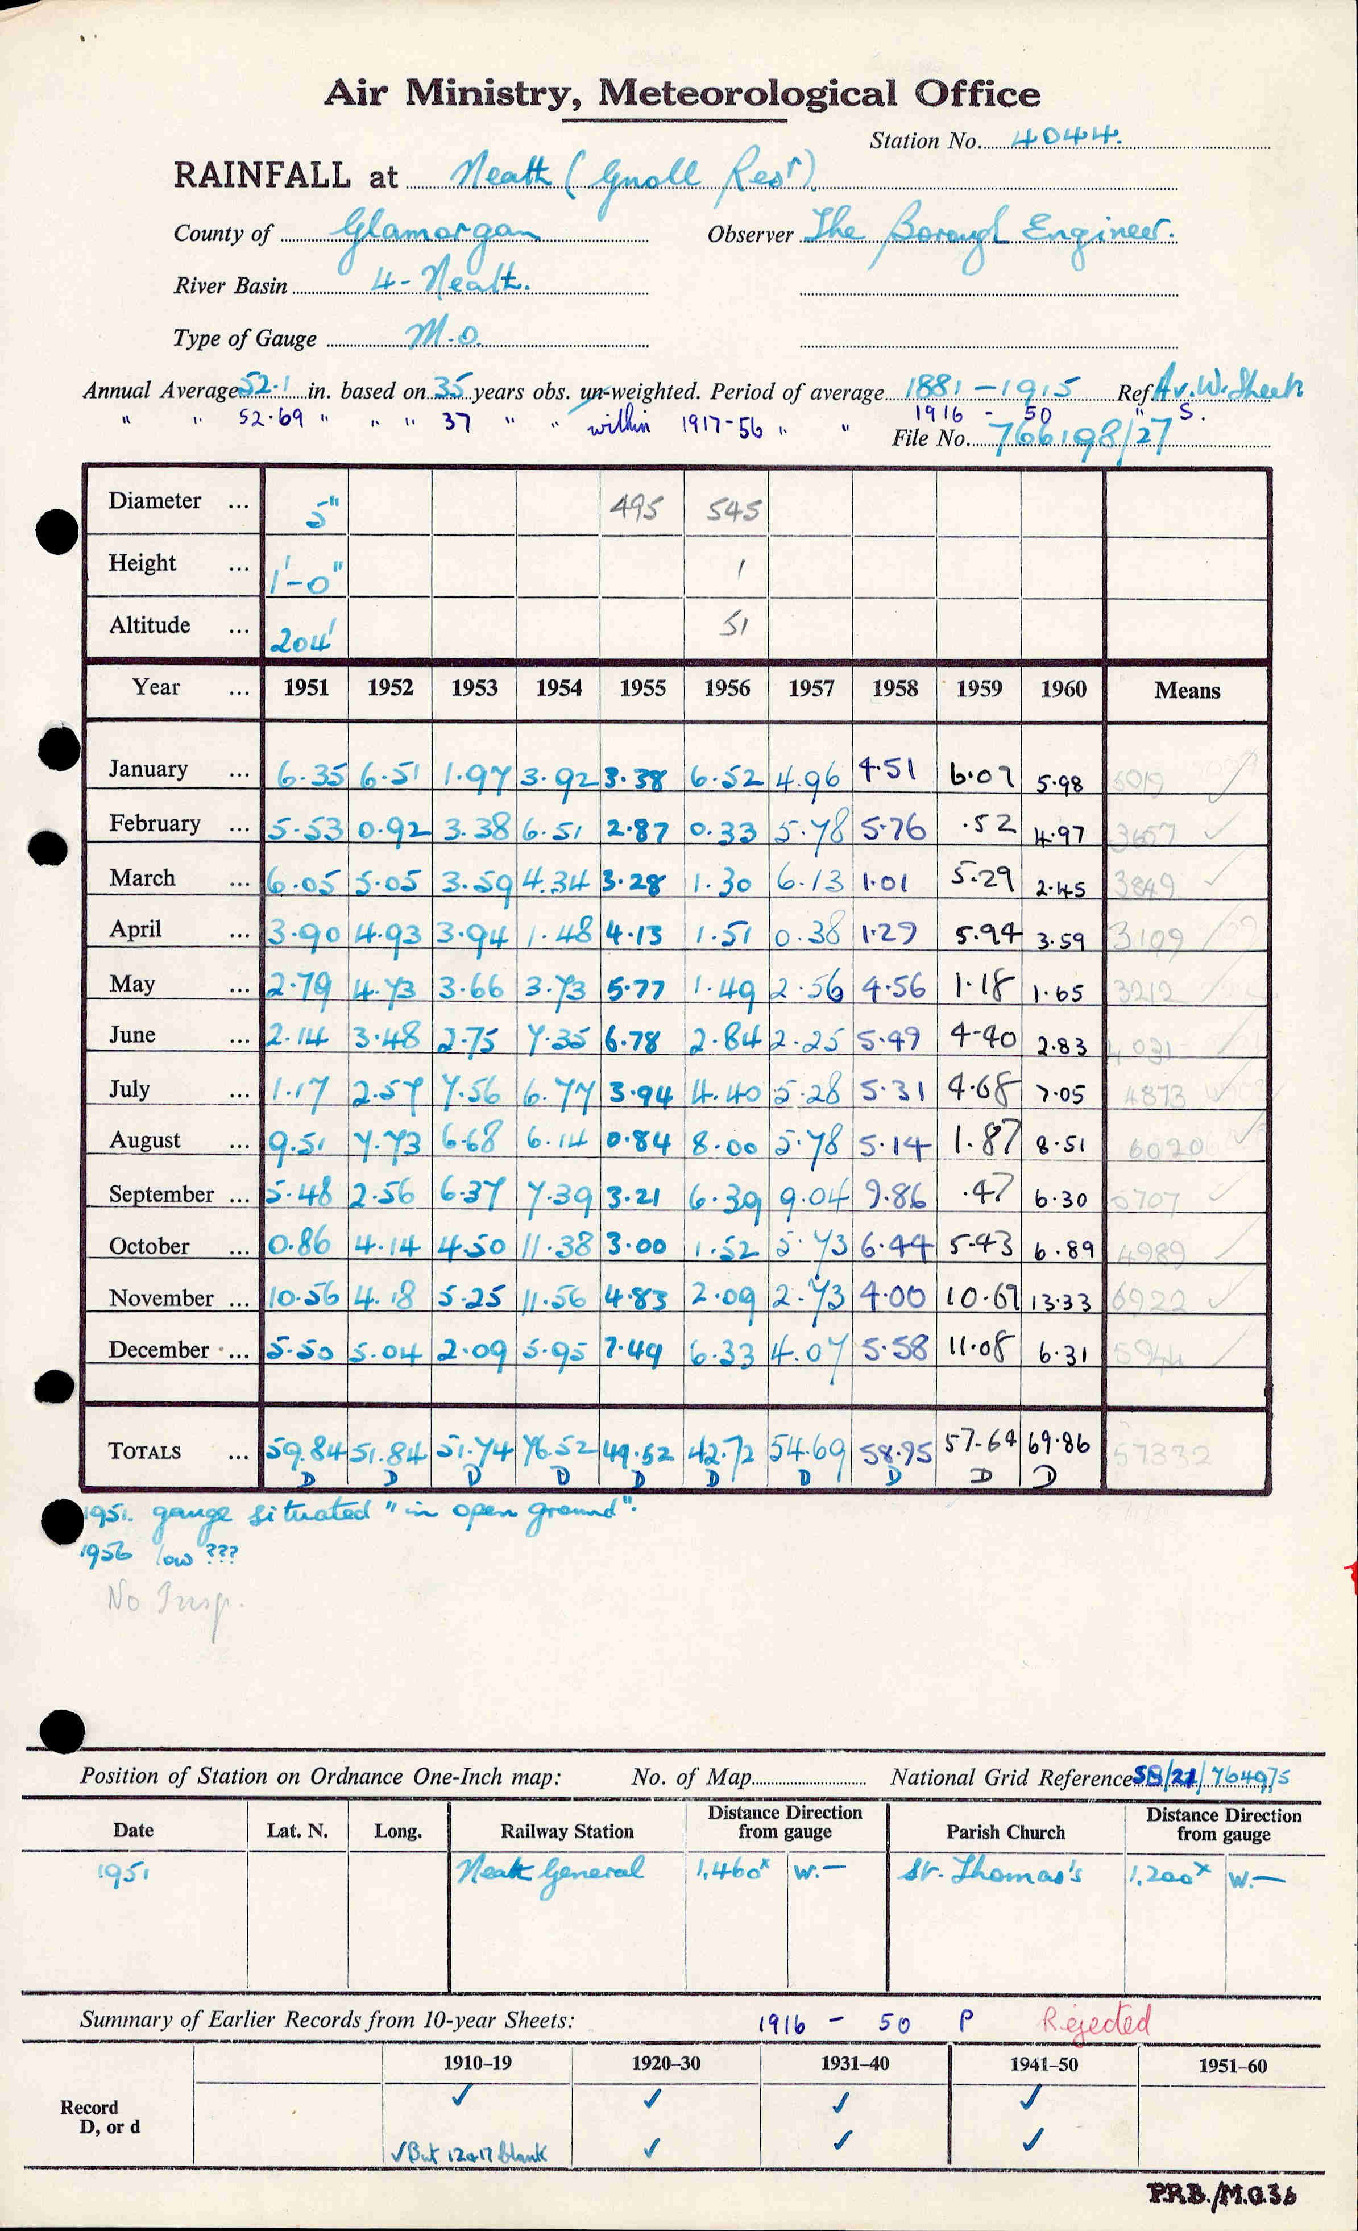 Air Ministry, Meteorological Office
Station No. 4044.
RAINFALL at Neath (Gnoll Resr)
County of Glamorgan Observer The Borough Engineer.
River Basin 4 - Neath.
Type of Gauge M.O.
Annual Average 52.1 in. based on 35 years obs. un-weighted. Period of average 1881 - 1915 Ref. Av. W. Sheet
" " 52.69 " " " 37 " " within 1917-56 " " 1916 - 50 " S.
File No. 766198/27
Diameter ... 5" 495 545
Height ... 1'-0" 1
Altitude ... 204' 51
Year ... 1951 1952 1953 1954 1955 1956 1957 1958 1959 1960 Means
January ... 6.35 6.51 1.97 3.92 3.38 6.52 4.96 4.51 6.09 5.98 5019
February ... 5.53 0.92 3.38 6.51 2.87 0.33 5.78 5.76 .52 4.97 3657 ✓
March ... 6.05 5.05 3.59 4.34 3.28 1.30 6.13 1.01 5.29 2.45 3849 ✓
April ... 3.90 4.93 3.94 1.48 4.13 1.51 0.38 1.29 5.94 3.59 3109
May ... 2.79 4.73 3.66 3.73 5.77 1.49 2.56 4.56 1.18 1.65 3212
June ... 2.14 3.48 2.75 7.35 6.78 2.84 2.25 5.49 4.40 2.83 4031
July ... 1.17 2.57 7.56 6.77 3.94 4.40 5.28 5.31 4.68 7.05 4873
August ... 9.51 7.73 6.68 6.14 0.84 8.00 5.78 5.14 1.87 8.51 6020
September ... 5.48 2.56 6.37 7.39 3.21 6.39 9.04 9.86 .47 6.30 5707 ✓
October ... 0.86 4.14 4.50 11.38 3.00 1.52 5.73 6.44 5.43 6.89 4989
November ... 10.56 4.18 5.25 11.56 4.83 2.09 2.73 4.00 10.69 13.33 6922 ✓
December ... 5.50 5.04 2.09 5.95 7.49 6.33 4.07 5.58 11.08 6.31 5944
TOTALS ... 59.84 51.84 51.74 76.52 49.52 42.72 54.69 58.95 57.64 69.86 57332
D D D D D D D D D D
1951. gauge situated "in open ground".
1956 low ???
No Insp.
Position of Station on Ordnance One-Inch map: No. of Map National Grid Reference 764975
Date Lat. N. Long. Railway Station Distance Direction from gauge Parish Church Distance Direction from gauge
1951 Neath General 1,460x W.— St. Thomas's 1,200x W.—
Summary of Earlier Records from 10-year Sheets: 1916 - 50 P Rejected
1910–19 1920–30 1931–40 1941–50 1951–60
Record ✓ ✓ ✓ ✓
D, or d ✓ But 12+17 blank ✓ ✓ ✓
P.R.B./M.O.36